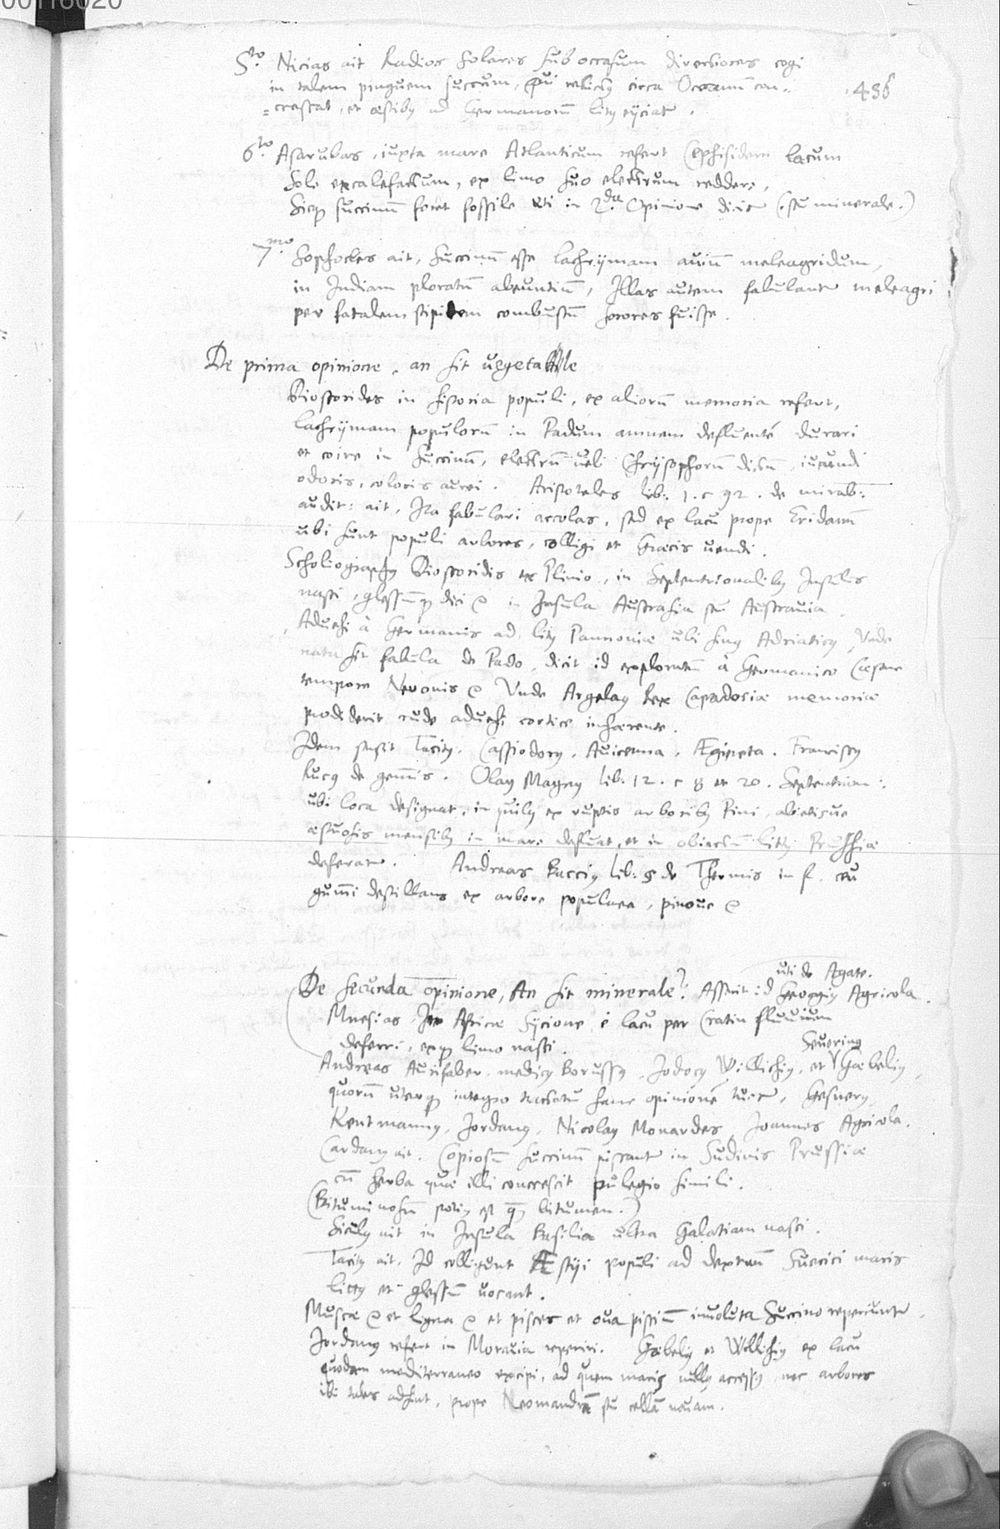 00116020
436
5to. Nicias ait Radios Solares sub occasum directiores cogi
in talem pinguem succum, qui relictus circa Oceanum con-
=crescat, et aestibus ad Germanorum litus eijciat.
6to. Asarubas, iuxta mare Atlanticum refert Cephisidem lacum
Sole excalefactum, ex limo suo electrum reddere,
Sicq succinum foret fossile uti in 2da Opinione dicit (seu minerale.)
7mo. Sophocles ait, Succinum esse lachrijmam auium meleagridum,
in Indiam ploratum abeuntium, Illas autem fabulantur meleagri
per fatalem stipitem combustum sorores fuisse.
De prima opinione, an sit uegetabile
Dioscorides in historia populi, ex aliorum memoria refert,
lachrijmam populorum in Padum amnem defluentem durari
et coire in Succinum, electrum ueli Chrijsophorum dictum, iucundi
odoris, coloris aurei. Aristoteles lib: 1. c 92. de mirab:
audit: ait, Ita fabulari accolas, sed ex lacu prope Eridanum
ubi sunt populi arbores, colligi et Graecis uendi.
Scholiographus Dioscoridis ex Plinio, in Septentrionalibus Insulis
nasci, glessumq dici & in Insula Austrasia seu Austrauia.
Aduehi à Germanis ad litus Pannoniae ubi sinus Adriaticus, Unde
nata sit fabula de Pado, dicit id exploratum à Germanico Caesare
tempore Neronis & Unde Argelaus Rex Capadociae memoriae
prodiderit rude aduehi cortice inhaerente.
Idem sensit Tacitus. Cassiodorus. Auicenna. Ægineta. Franciscus
Rueus de gemmis. Olaus Magnus lib. 12. c 8 et 20. Septentrion:
ubi loca designat, in quibus ex ruptis arboribus Pini, abietisue
aestuosis mensibus in mare defluat, et in obiectum litus Prussiae
deferatur. Andreas Baccius lib: 5 de Thermis in f. ceu
gummi destillans ex arbore populnea, pinoue &
De secunda opinione, An sit minerale? Asserit id Georgius Agricola.
uti de Agate.
Mnesias In Africae Sycione è lacu per Cratin fluuium
deferri, exq limo nasci.
Andreas Aurifaber medicus Borussus, Jodocus Willichius, et Seuerinus Gœbelius,
quorum uterq integro tractatu hanc opinionem tuetur, Gesnerus,
Kentmannus, Jordanus, Nicolaus Monardes, Joannes Agricola.
Cardanus ait. Copiosum Succinum piscantur in Sudinis Prussiae
cum herba quae illi concrescit pulegio simili.
(Bituminosum potius est quam bitumen.)
Siculus ait in Insula Basilia ultra Galatiam nasci.
Tacitus ait, Id colligunt Æstyi populi ad dextrum Sueuici maris
littus et glessum uocant.
Muscae & et ligna & et pisces et oua piscium inuoluta Succino reperiuntur.
Jordanus refert in Morauia reperiri. Gœbelius et Willichius ex lacu
quodam mediterraneo excipi, ad quem maris nullus accessus, nec arbores
ibi tales adsint, prope Neomandriam seu cellam nouam.